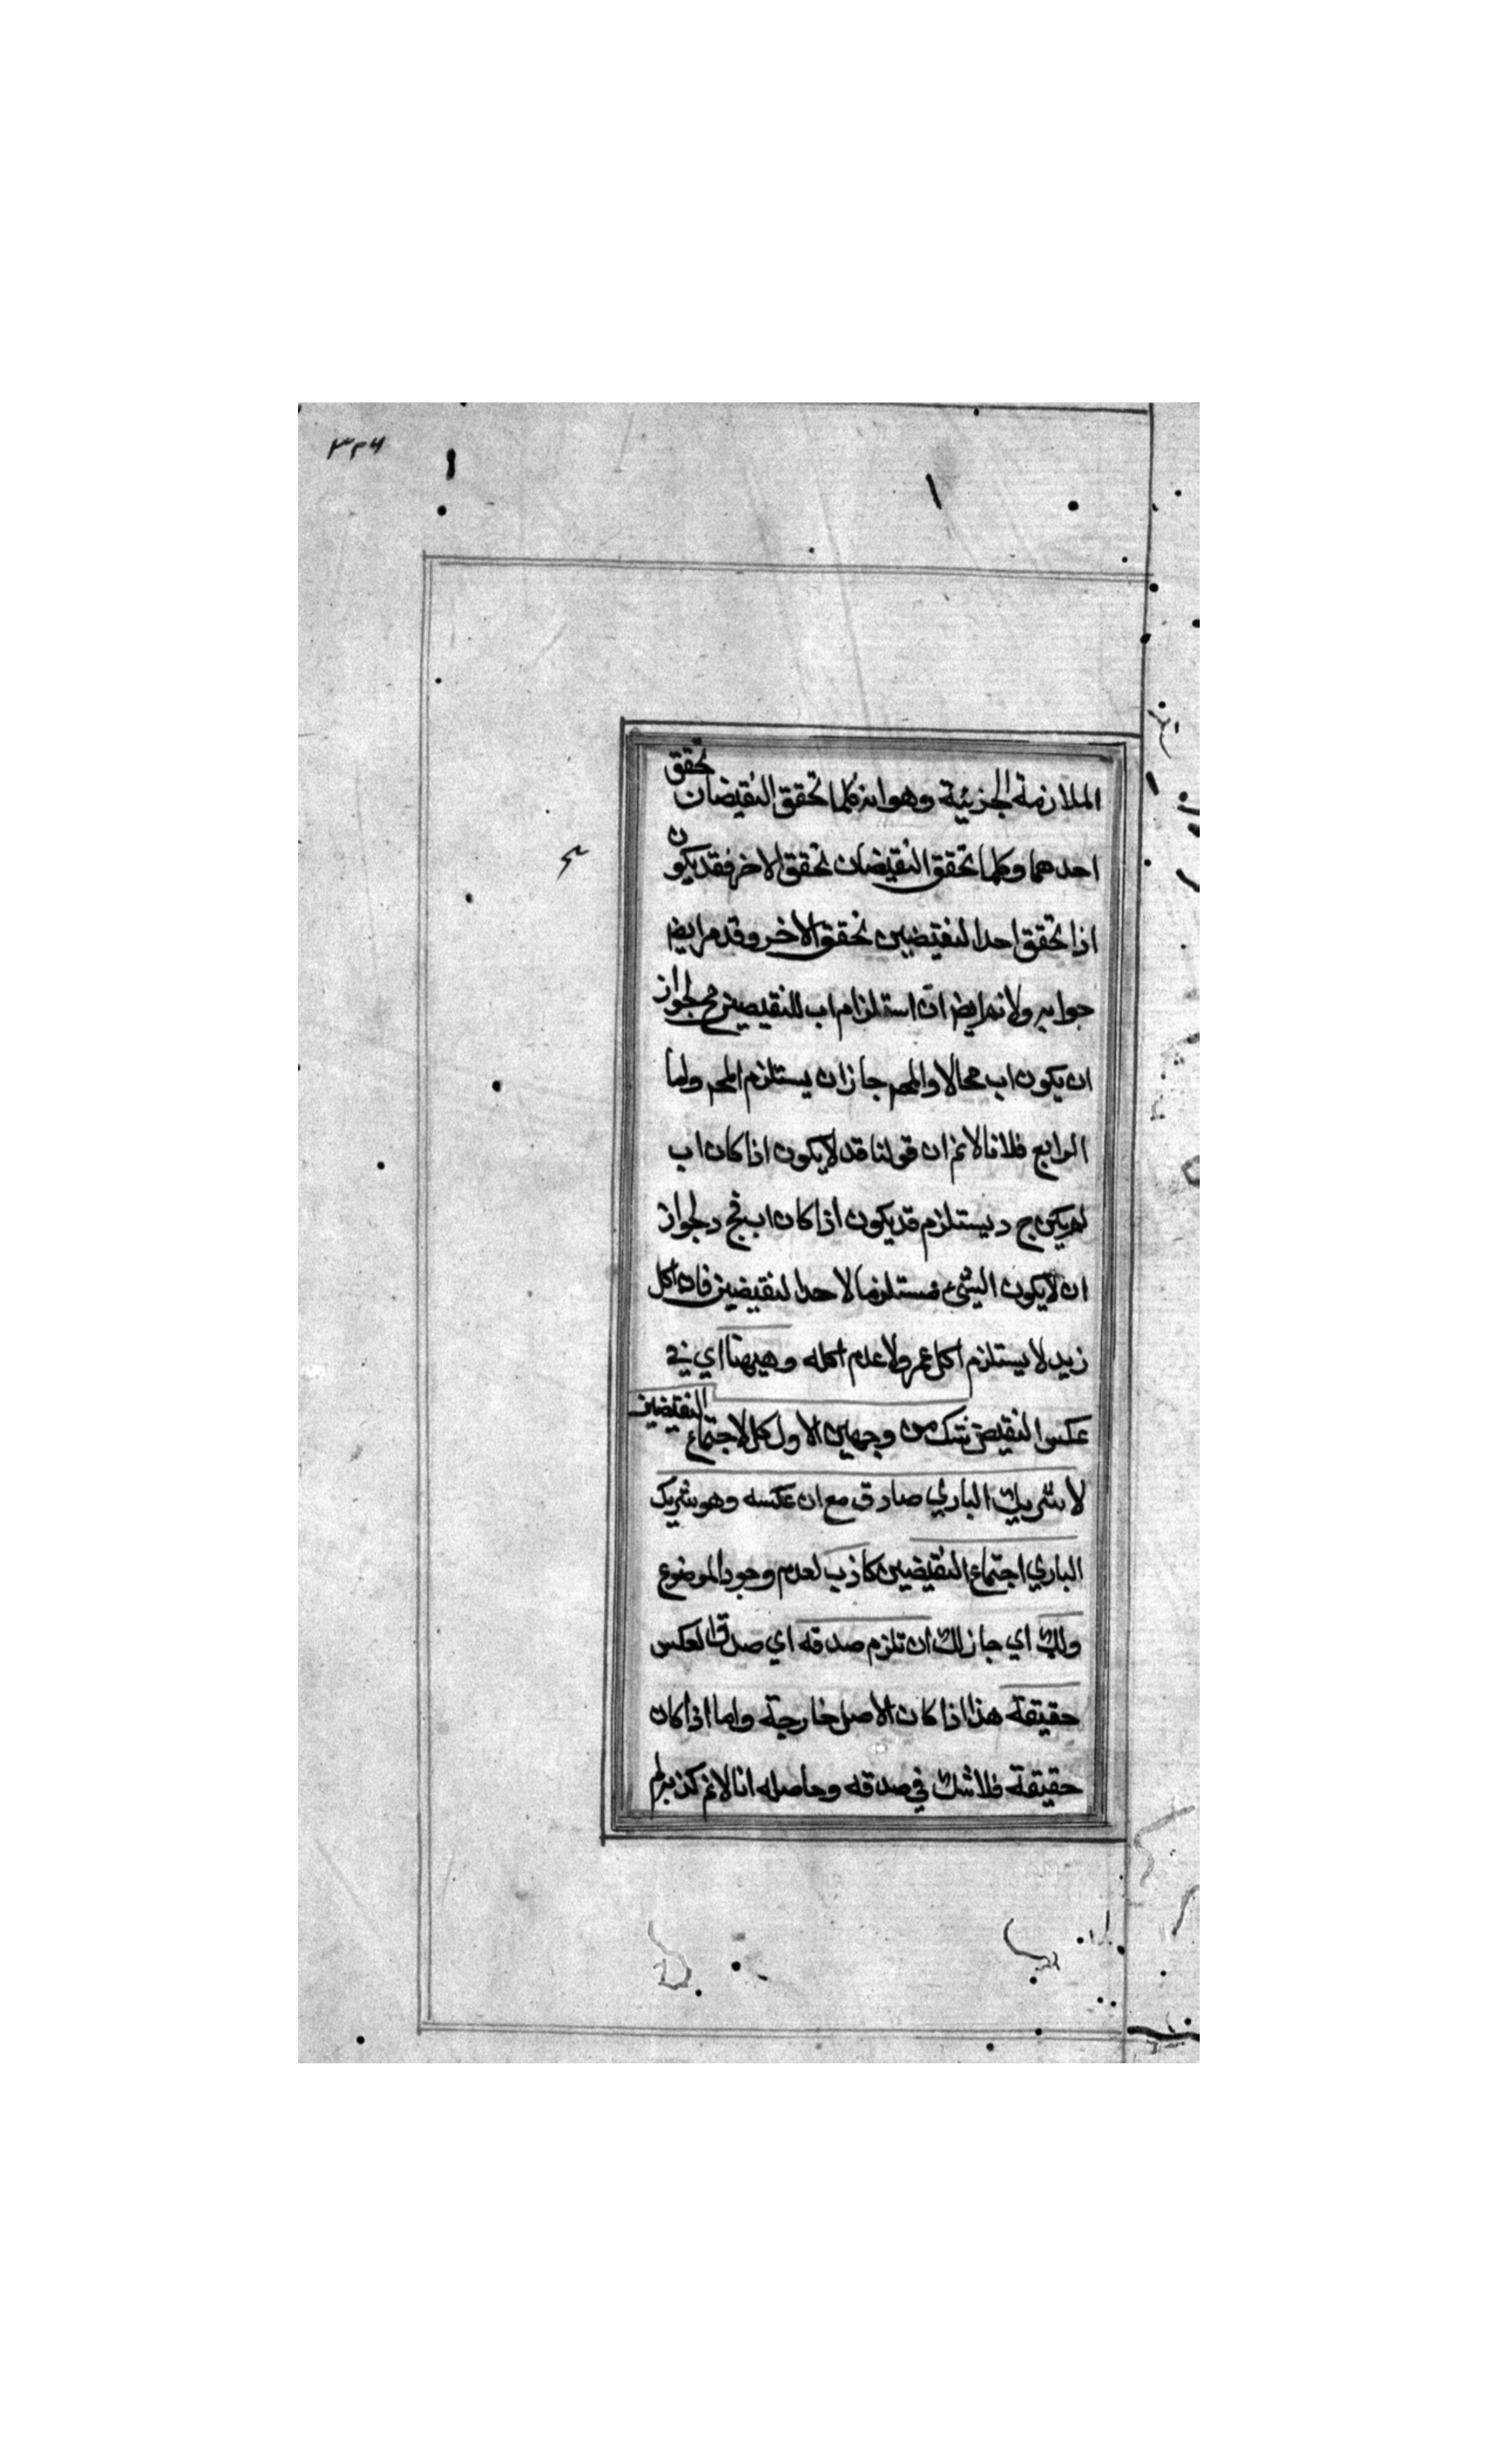 ٣٢٦
الملازمة الجزئية وهو انه كلما تحقق النقيضان تحقق
احدهما وكلما تحقق النقيضان تحقق الاخر فقد يكون
اذا تحقق احد النقيضين تحقق الاخر وقد مر ايض
جوابه ولانم ايض ان استلزام اب للنقيضين مح لجواز
ان يكون اب محالا والمح جاز ان يستلزم المح واما
الرابع فلانا لانم ان قولنا قد لا يكون اذا كان اب
لم يكن ج د يستلزم قد يكون اذا كان اب فج د لجواز
ان لا يكون الشيء مستلزما لاحد النقيضين فان اكل
زيد لا يستلزم اكل عمرو لا عدم اكله وهيهنا اي في
عكس النقيض شك من وجهين الاول كل لا اجتماع النقيضين
لا شريك الباري صادق مع ان عكسه وهو شريك
الباري اجتماع النقيضين كاذب لعدم وجود الموضوع
ولك اي جاز لك ان تلزم صدقه اي صدق العكس
حقيقة هذا اذا كان الاصل خارجية واما اذا كان
حقيقة فلا شك في صدقه وحاصله انا لانم كذبه لم